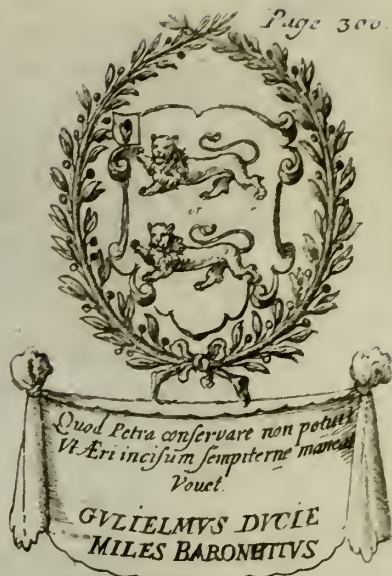 Page 300.
or
Quod Petra conservare non potuit
Vt Æri incisum sempiterne maneat
Vovet.
GVLIELMVS DVCIE
MILES BARONETTVS